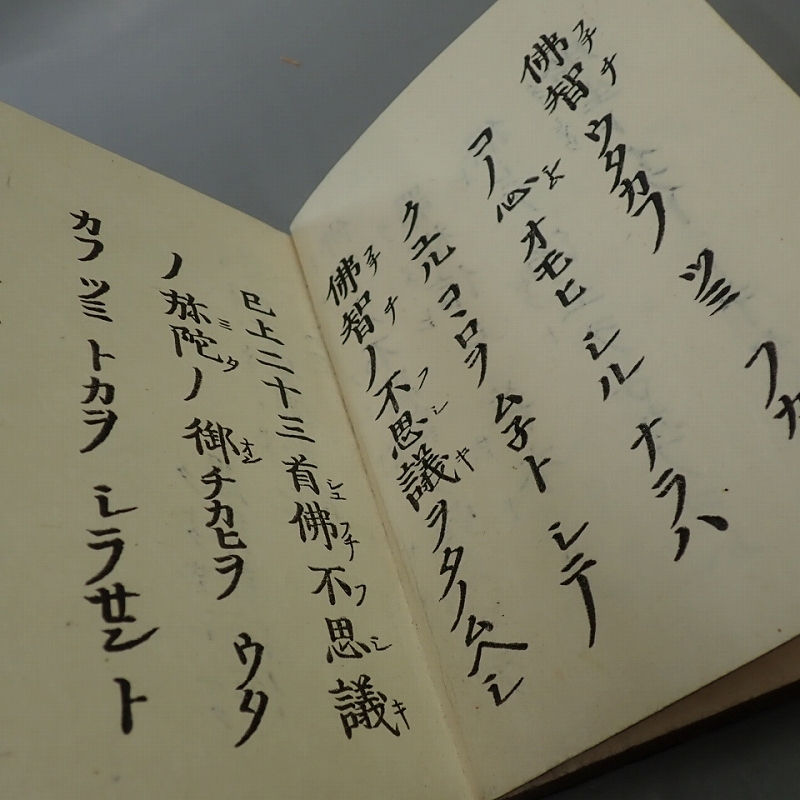 佛智ウタカフ ツミ フカ
コノ心オモヒ シル ナラハ
クユル コヽロヲ ム子ト シテ
佛智ノ不思議ヲタノムヘシ
已上二十三首佛不思議
ノ弥陀ノ御チカヒヲ ウタ
カフ ツミ トカヲ シラセント